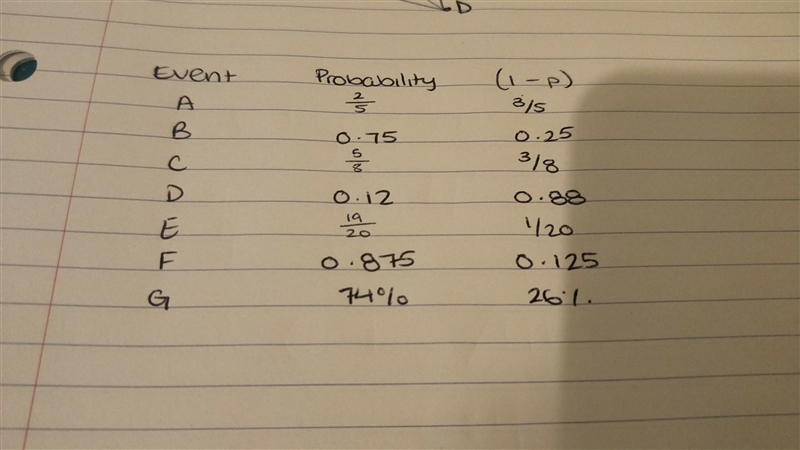 D
Event Probability (1-p)
A 2/5 3/5
B 0.75 0.25
C 5/8 3/8
D 0.12 0.88
E 19/20 1/20
F 0.875 0.125
G 74% 26%